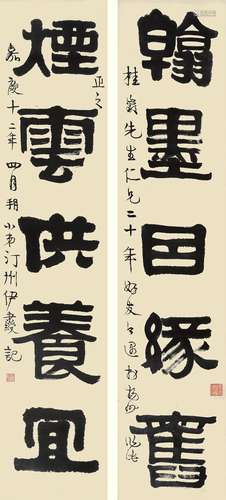 翰墨囙緣舊
桂先生仁兄二十年好友過
正之
煙雲供養宜
嘉慶十二年四月朔小弟汀州伊秉綬記